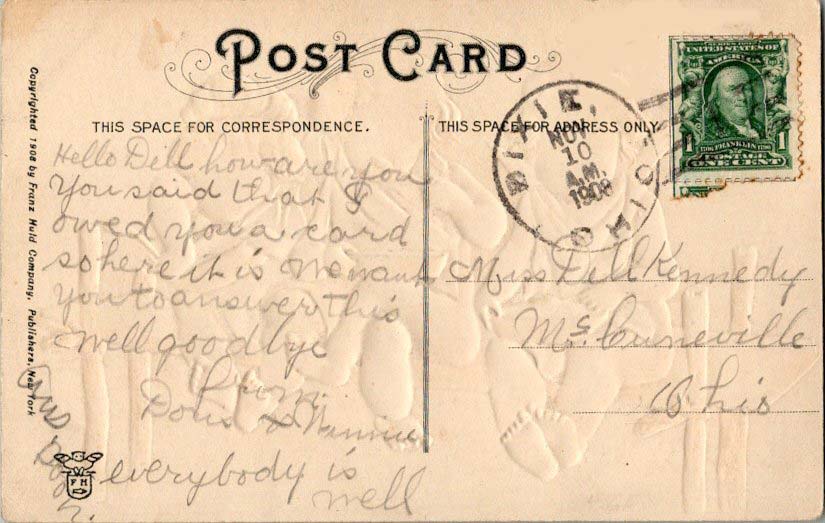 POST CARD
THIS SPACE FOR CORRESPONDENCE.
THIS SPACE FOR ADDRESS ONLY.
Hello Dell how are you
You said that I
owed you a card
so here it is We want
you to answer this
well good bye
From
Doris & Minnie
everybody is
well
Miss Dell Kennedy
McCuneville
Ohio
DIXIE,
NOV
10
A.M.
1908
OHIO
UNITED STATES OF
AMERICA
1706 FRANKLIN 1790
1 1
POSTAGE
ONE CENT
Copyrighted 1908 by Franz Huld Company, Publishers, New York
F H